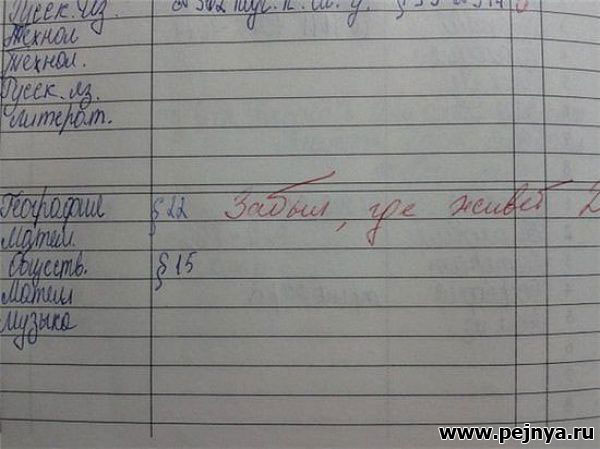 Русск. яз.
Технол
Технол.
Русск. яз.
Литерат.
География § 22 Забыл, где живёт 2
Матем.
Обществ. § 15
Матем
Музыка
www.pejnya.ru